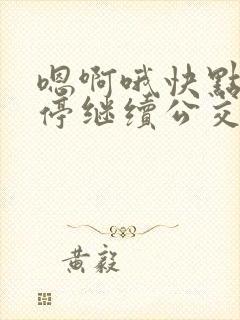 嗯啊哦快點
停继續公交
黄毅